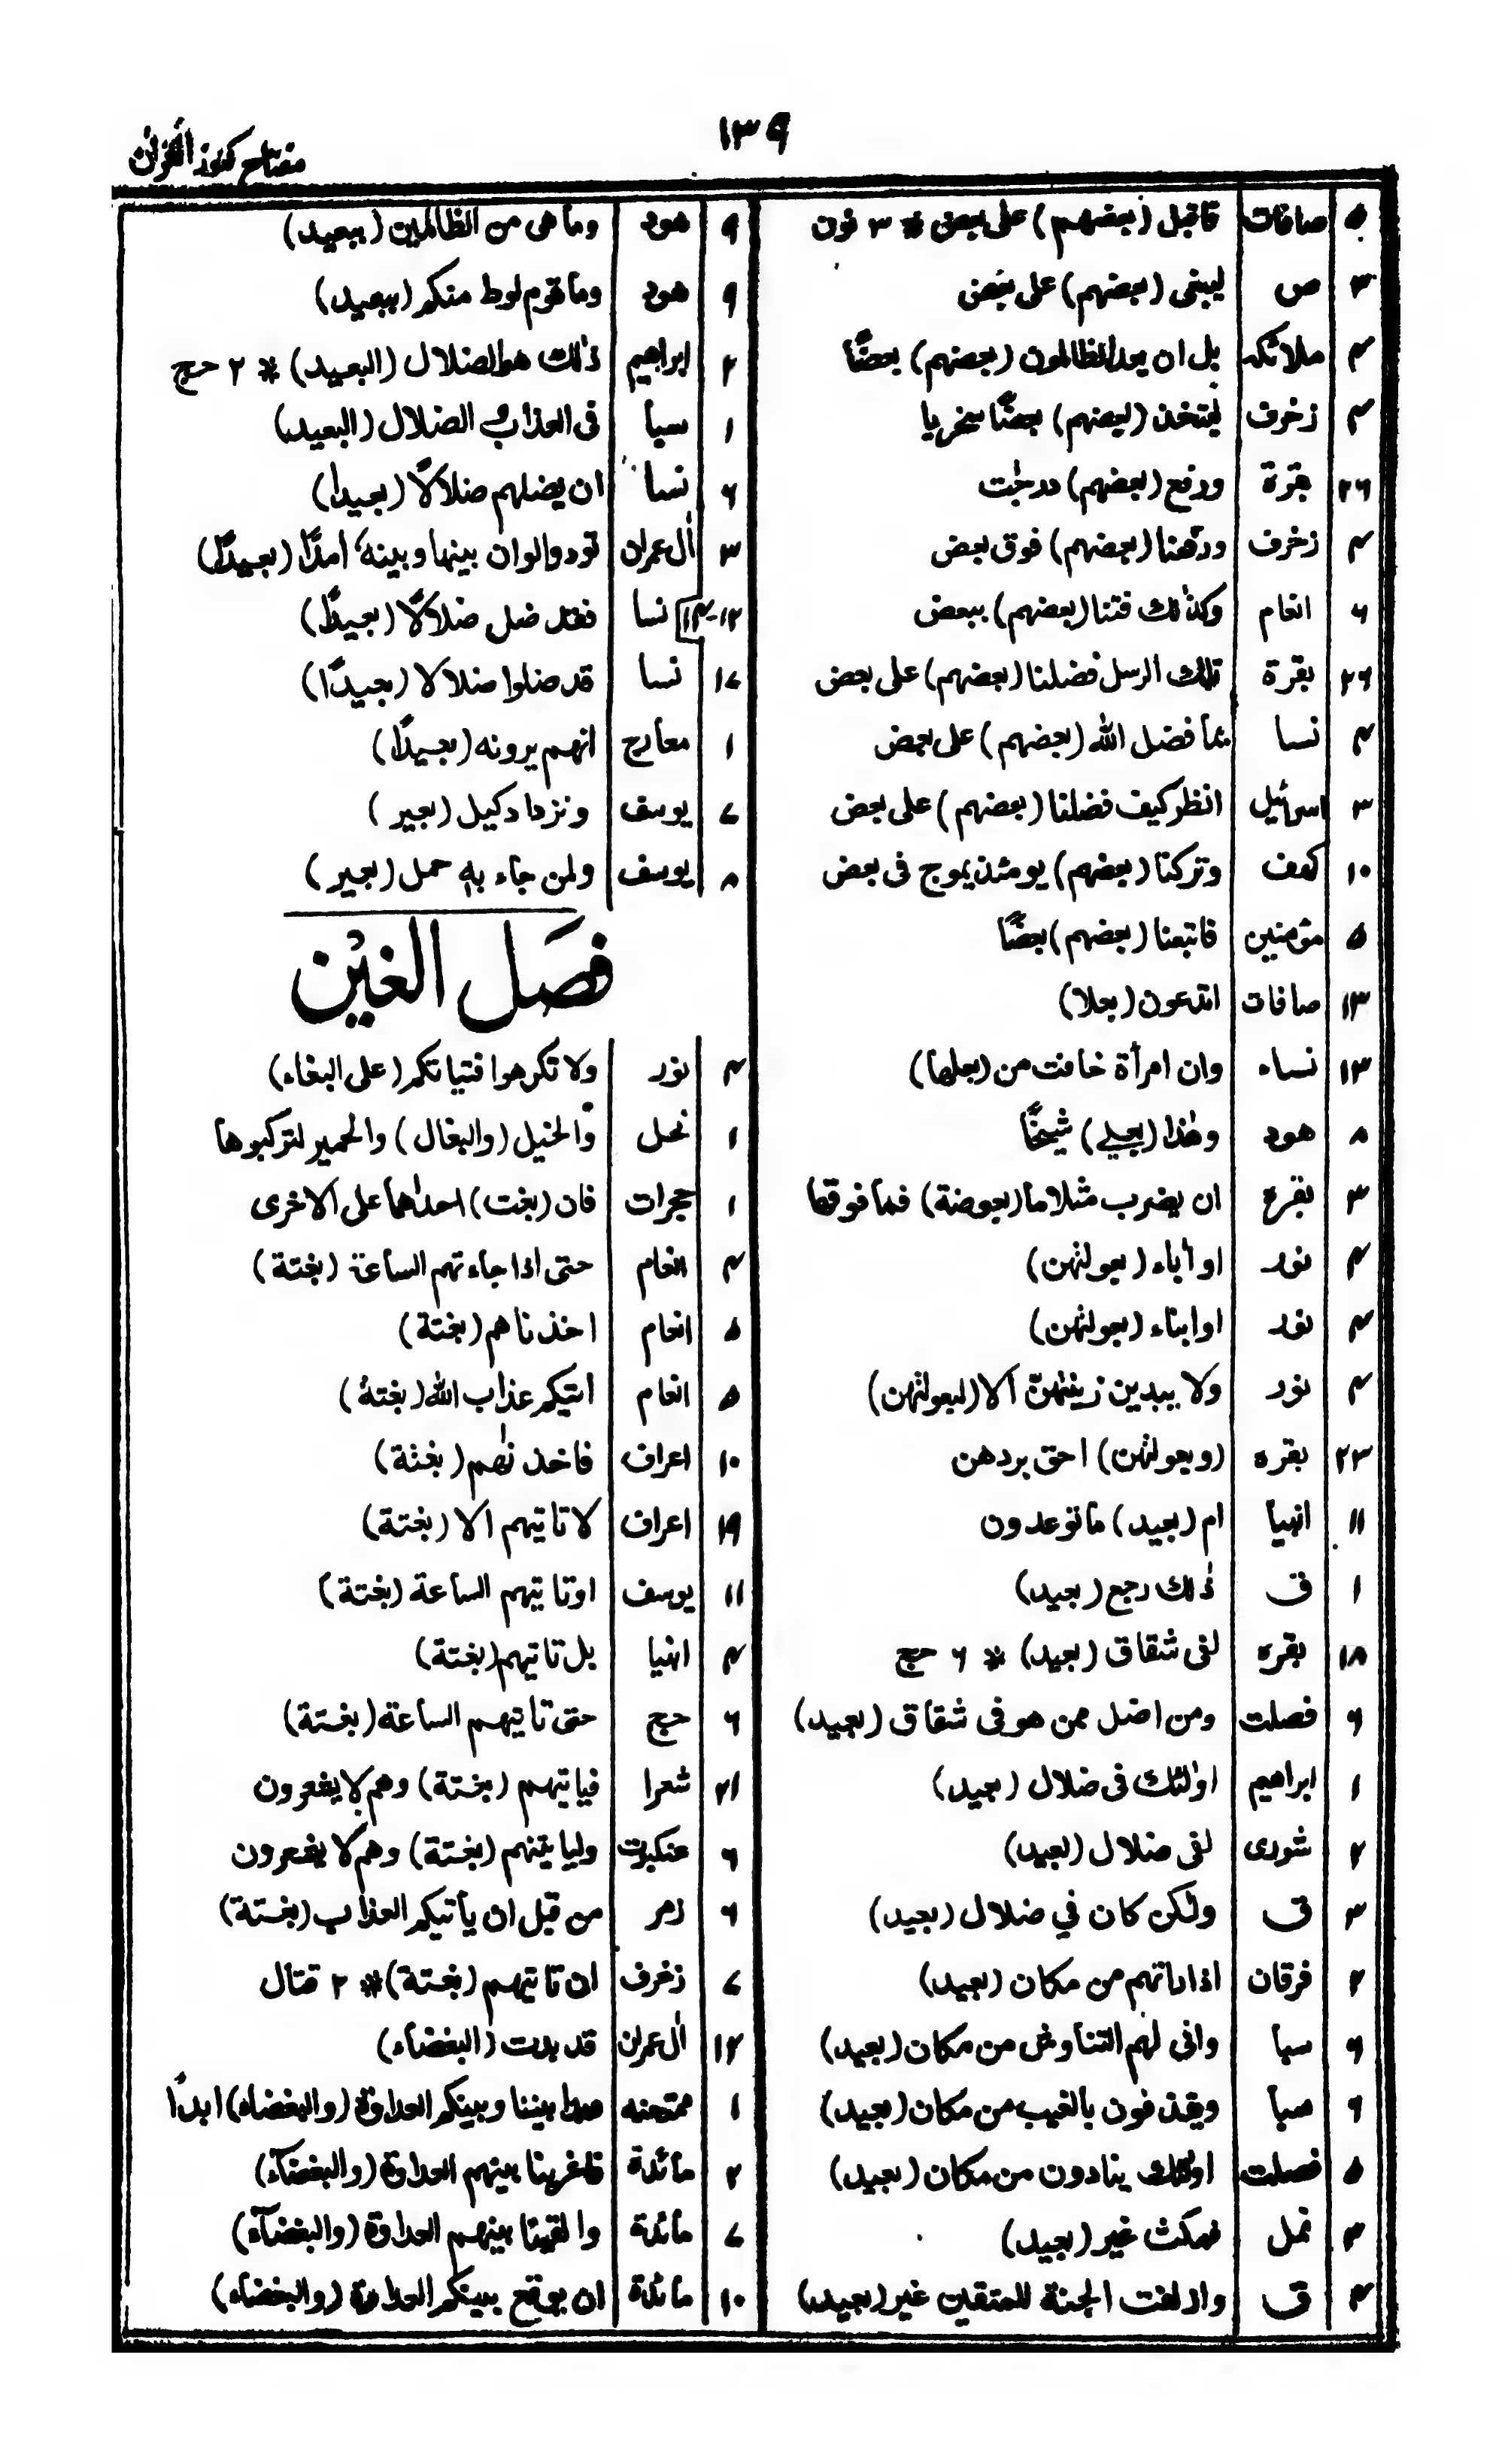 ١٣٩
مفتاح كنوز القرآن
٥ صافات فاقبل (بعضهم) على بعض * ٣ نون
٣ ص ليبغى (بعضهم) على بعض
٤ ملائكه بل ان يعد الظالمون (بعضهم) بعضًا
٣ زخرف ليتخذ (بعضهم) بعضًا سخريا
٢٦ بقرة ورفع (بعضهم) درجٰت
٣ زخرف ورفعنا (بعضهم) فوق بعض
٦ انعام وكذٰلك فتنا (بعضهم) ببعض
٢٦ بقرة تلك الرسل فضلنا (بعضهم) على بعض
٤ نسا بما فضل الله (بعضهم) على بعض
٣ اسرائيل انظر كيف فضلنا (بعضهم) على بعض
١٠ كهف وتركنا (بعضهم) يومئذ يموج فى بعض
٥ مؤمنين فاتبعنا (بعضهم) بعضًا
١٣ صافات اتدعون (بعلا)
١٣ نساء وان امرأة خافت من (بعلها)
٨ هود وهٰذا (بعلي) شيخًا
٣ بقره ان يضرب مثلا ما (بعوضة) فما فوقها
٤ نور او أباء (بعولتهن)
٤ نور او ابناء (بعولتهن)
٤ نور ولا يبدين زينتهن الا (لبعولتهن)
٢٣ بقره (وبعولتهن) احق بردهن
١١ انبيأ ام (بعيد) ما توعدون
١ ق ذٰلك رجع (بعيد)
١٨ بقره لفى شقاق (بعيد) * ٦ حج
٦ فصلت ومن اضل ممن هو فى شقاق (بعيد)
١ ابراهيم اولٰئك فى ضلال (بعيد)
٢ شورى لفى ضلال (بعيد)
٣ ق ولٰكن كان في ضلال (بعيد)
٢ فرقان اذا راتهم من مكان (بعيد)
٦ سبا وانى لهم التناوش من مكان (بعيد)
٦ سبأ ويقذفون بالغيب من مكان (بعيد)
٥ فصلت اولٰئك ينادون من مكان (بعيد)
٣ نمل فمكث غير (بعيد)
٣ ق وازلفت الجنة للمتقين غير (بعيد)
٩ هود وما هى من الظالمين (ببعيد)
٩ هود وما قوم لوط منكم (ببعيد)
٢ ابراهيم ذٰلك هو الضلال (البعيد) * ٢ حج
١ سبأ فى العذاب والضلال (البعيد)
٦ نسا ان يضلهم ضلالاً (بعيدا)
٣ اٰل عمران تود لو ان بينها وبينه امدًا (بعيدًا)
١٢-١٣ نسا فقد ضل ضلالاً (بعيدًا)
١٧ نسا قد ضلوا ضلالا (بعيدًا)
١ معارج انهم يرونه (بعيدًا)
٧ يوسف ونزداد كيل (بعير)
٨ يوسف ولمن جاء به حمل (بعير)
فصل الغين
٤ نور ولا تكرهوا فتياتكم (على البغاء)
١ نحل والخيل (والبغال) والحمير لتركبوها
١ حجرات فان (بغت) احداهما على الاخرى
٤ انعام حتى اذا جاءتهم الساعة (بغتة)
٥ انعام اخذناهم (بغتة)
٥ انعام اتيكم عذاب الله (بغتة)
١٠ اعراف فاخذنٰهم (بغتة)
١٩ اعراف لا تاتيهم الا (بغتة)
١١ يوسف او تاتيهم الساعة (بغتة)
٤ انبيا بل تاتيهم (بغتة)
٦ حج حتى تاتيهم الساعة (بغتة)
٢١ شعرا فياتيهم (بغتة) وهم لا يشعرون
٦ عنكبوت ولياتينهم (بغتة) وهم لا يشعرون
٦ زمر من قبل ان يأتيكم العذاب (بغتة)
٧ زخرف ان تاتيهم (بغتة) * ٢ قتال
١٢ اٰل عمران قد بدت (البغضاء)
١ ممتحنه وبدا بيننا وبينكم العداوة (والبغضاء) ابدًا
٢ مائدة فاغرينا بينهم العداوة (والبغضآء)
٧ مائدة والقينا بينهم العداوة (والبغضآء)
١٠ مائدة ان يوقع بينكم العداوة (والبغضاء)